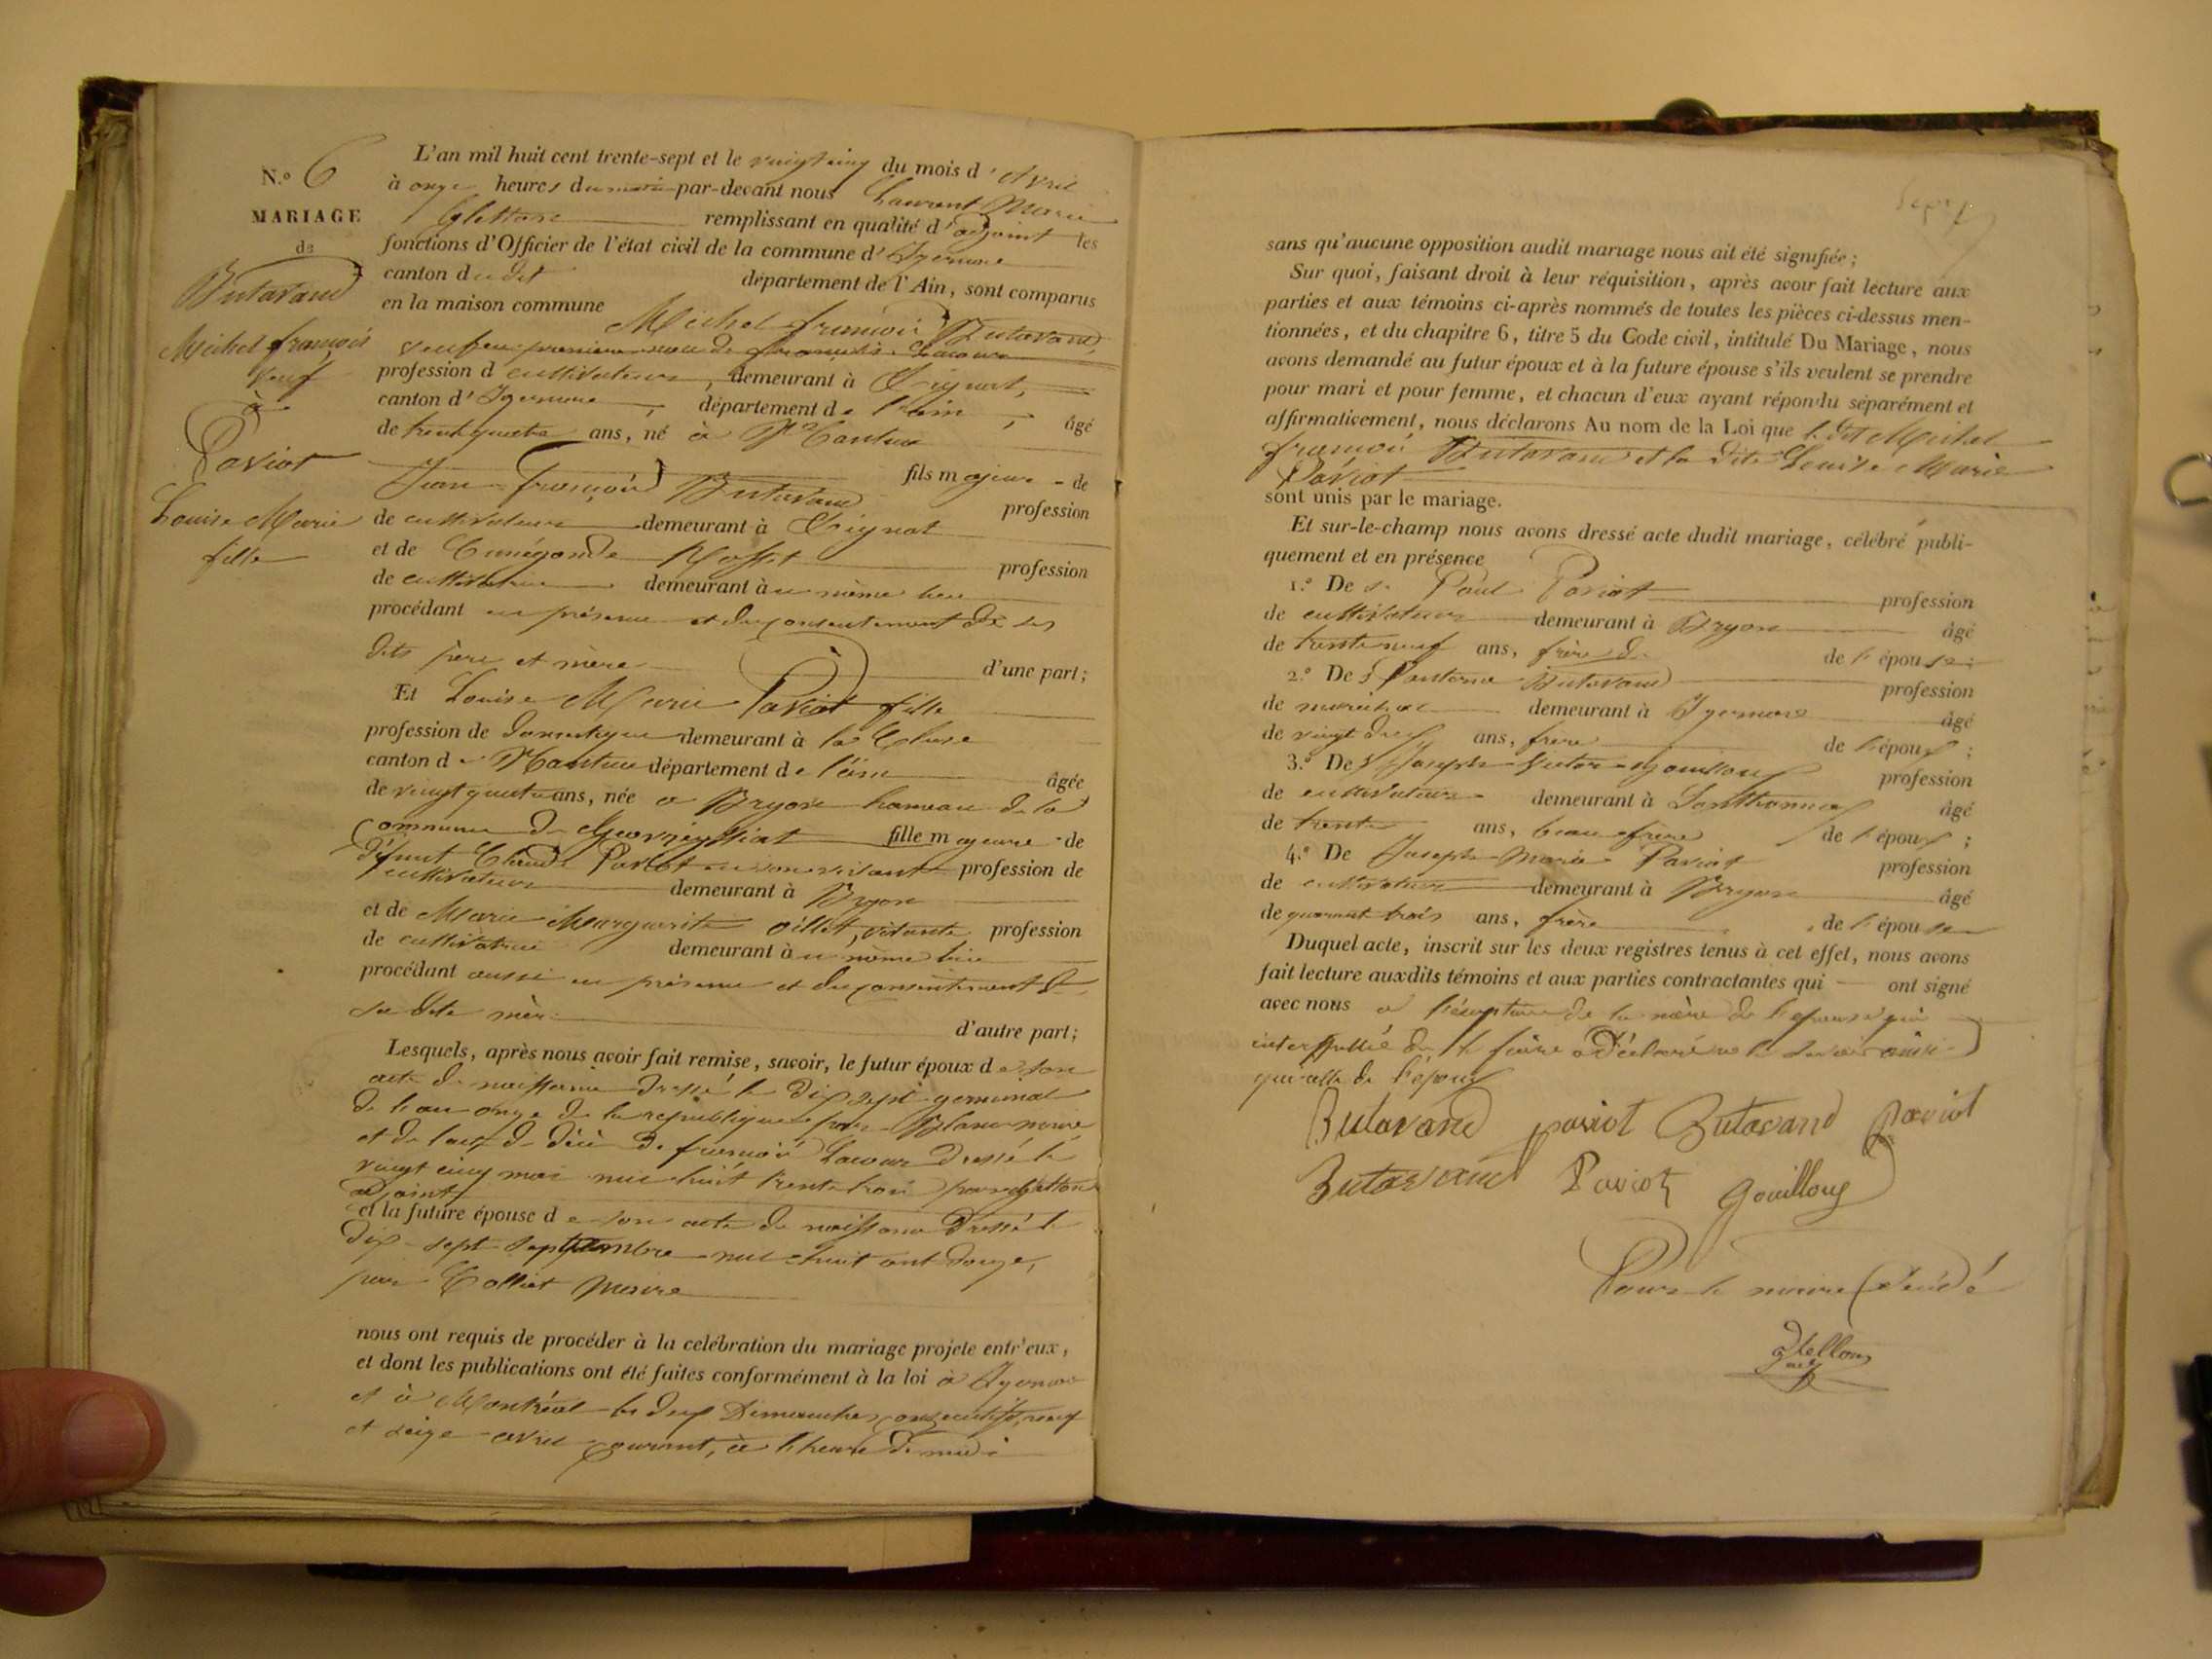 N.o 6
MARIAGE
de
Butavand
Michel françois
veuf
à
Paviot
Louise Marie
fille
L'an mil huit cent trente-sept et le vingt cinq du mois d'avril
à onze heures du matin par-devant nous Laurent Marie
remplissant en qualité d'adjoint les
fonctions d'Officier de l'état civil de la commune d'Izernore
canton du dit département de l'Ain, sont comparus
en la maison commune Michel françois Butavand,
veuf en premieres noces de françoise Lacour
profession d cultivateur, demeurant à Ceignat,
canton d'Izernore, département de l'ain, âgé
de trente quatre ans, né à Nantua
fils majeur de
Jean François Butavand profession
de cultivateur demeurant à Ceignat
et de Cunégonde Rosset profession
de cultivatrice demeurant au même lieu
procédant en présence et du consentement de ses
dits père et mère d'une part;
Et Louise Marie Paviot fille
profession de domestique demeurant à la Cluse
canton de Nantua département de l'ain âgée
de vingt quatre ans, née à Bryon hameau de la
commune de Geovreyssiat fille majeure de
défunt Claude Paviot en son vivant profession de
cultivateur demeurant à Bryon
et de Marie Marguerite oillet, vivante profession
de cultivatrice demeurant au même lieu
procédant aussi en présence et du consentement de
sa dite mère d'autre part;
Lesquels, après nous avoir fait remise, savoir, le futur époux de son
acte de naissance dressé le dix sept germinal
de l'an onze de la republique par Blanc maire
et de l'acte de décès de françoise Lacour dressé le
vingt cinq mai mil huit trente trois par
adjoint
et la future épouse de son acte de naissance dressé le
dix-sept septembre mil huit cent douze,
par Colliet maire
nous ont requis de procéder à la celébration du mariage projete entr'eux,
et dont les publications ont été faites conformément à la loi à Izernore
et à Montréal les deux Dimanches consecutifs, neuf
et seize avril courant, à l'heure de midi
sept
sans qu'aucune opposition audit mariage nous ait été signifiée;
Sur quoi, faisant droit à leur réquisition, après avoir fait lecture aux
parties et aux témoins ci-après nommés de toutes les pièces ci-dessus men-
tionnées, et du chapitre 6, titre 5 du Code civil, intitulé Du Mariage, nous
avons demandé au futur époux et à la future épouse s'ils veulent se prendre
pour mari et pour femme, et chacun d'eux ayant répondu séparément et
affirmativement, nous déclarons Au nom de la Loi que le dit Michel
françois Butavand et la dite Louise Marie
Paviot
sont unis par le mariage.
Et sur-le-champ nous avons dressé acte dudit mariage, célébré publi-
quement et en présence
1.o De s. Paul Paviot profession
de cultivateur demeurant à Bryon âgé
de trente neuf ans, frère de de l'épouse;
2.o De s. Butavand profession
de maréchal demeurant à Izernore âgé
de vingt deux ans, frère de l'époux;
3.o De s. Joseph Victor gouilloux profession
de cultivateur demeurant à âgé
de trente ans, beau frère de l'époux;
4.o De Joseph Marie Paviot profession
de cultivateur demeurant à Bryon âgé
de quarante trois ans, frère de l'épouse
Duquel acte, inscrit sur les deux registres tenus à cet effet, nous avons
fait lecture auxdits témoins et aux parties contractantes qui ont signé
avec nous à l'exception de la mère de l'epouse qui
interpellée de le faire a déclaré ne le savoir ainsi
que celle de l'époux
Butavand paviot Butavand Paviot
Butavand Paviot gouilloux
Pour le maire